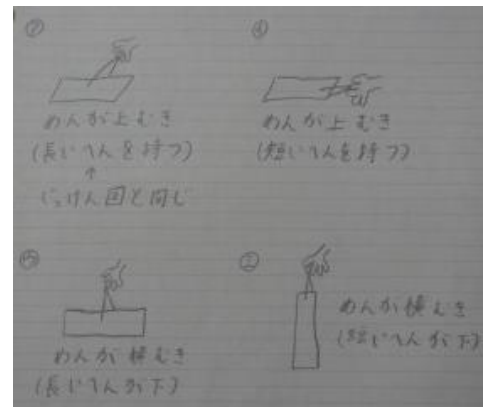 ㋐
めんが上むき
(長いへんを持つ)
↑
じっけん図と同じ
㋑
めんが上むき
(短いへんを持つ)
㋒
めんが横むき
(長いへんが下)
㋓
めんが横むき
(短いへんが下)